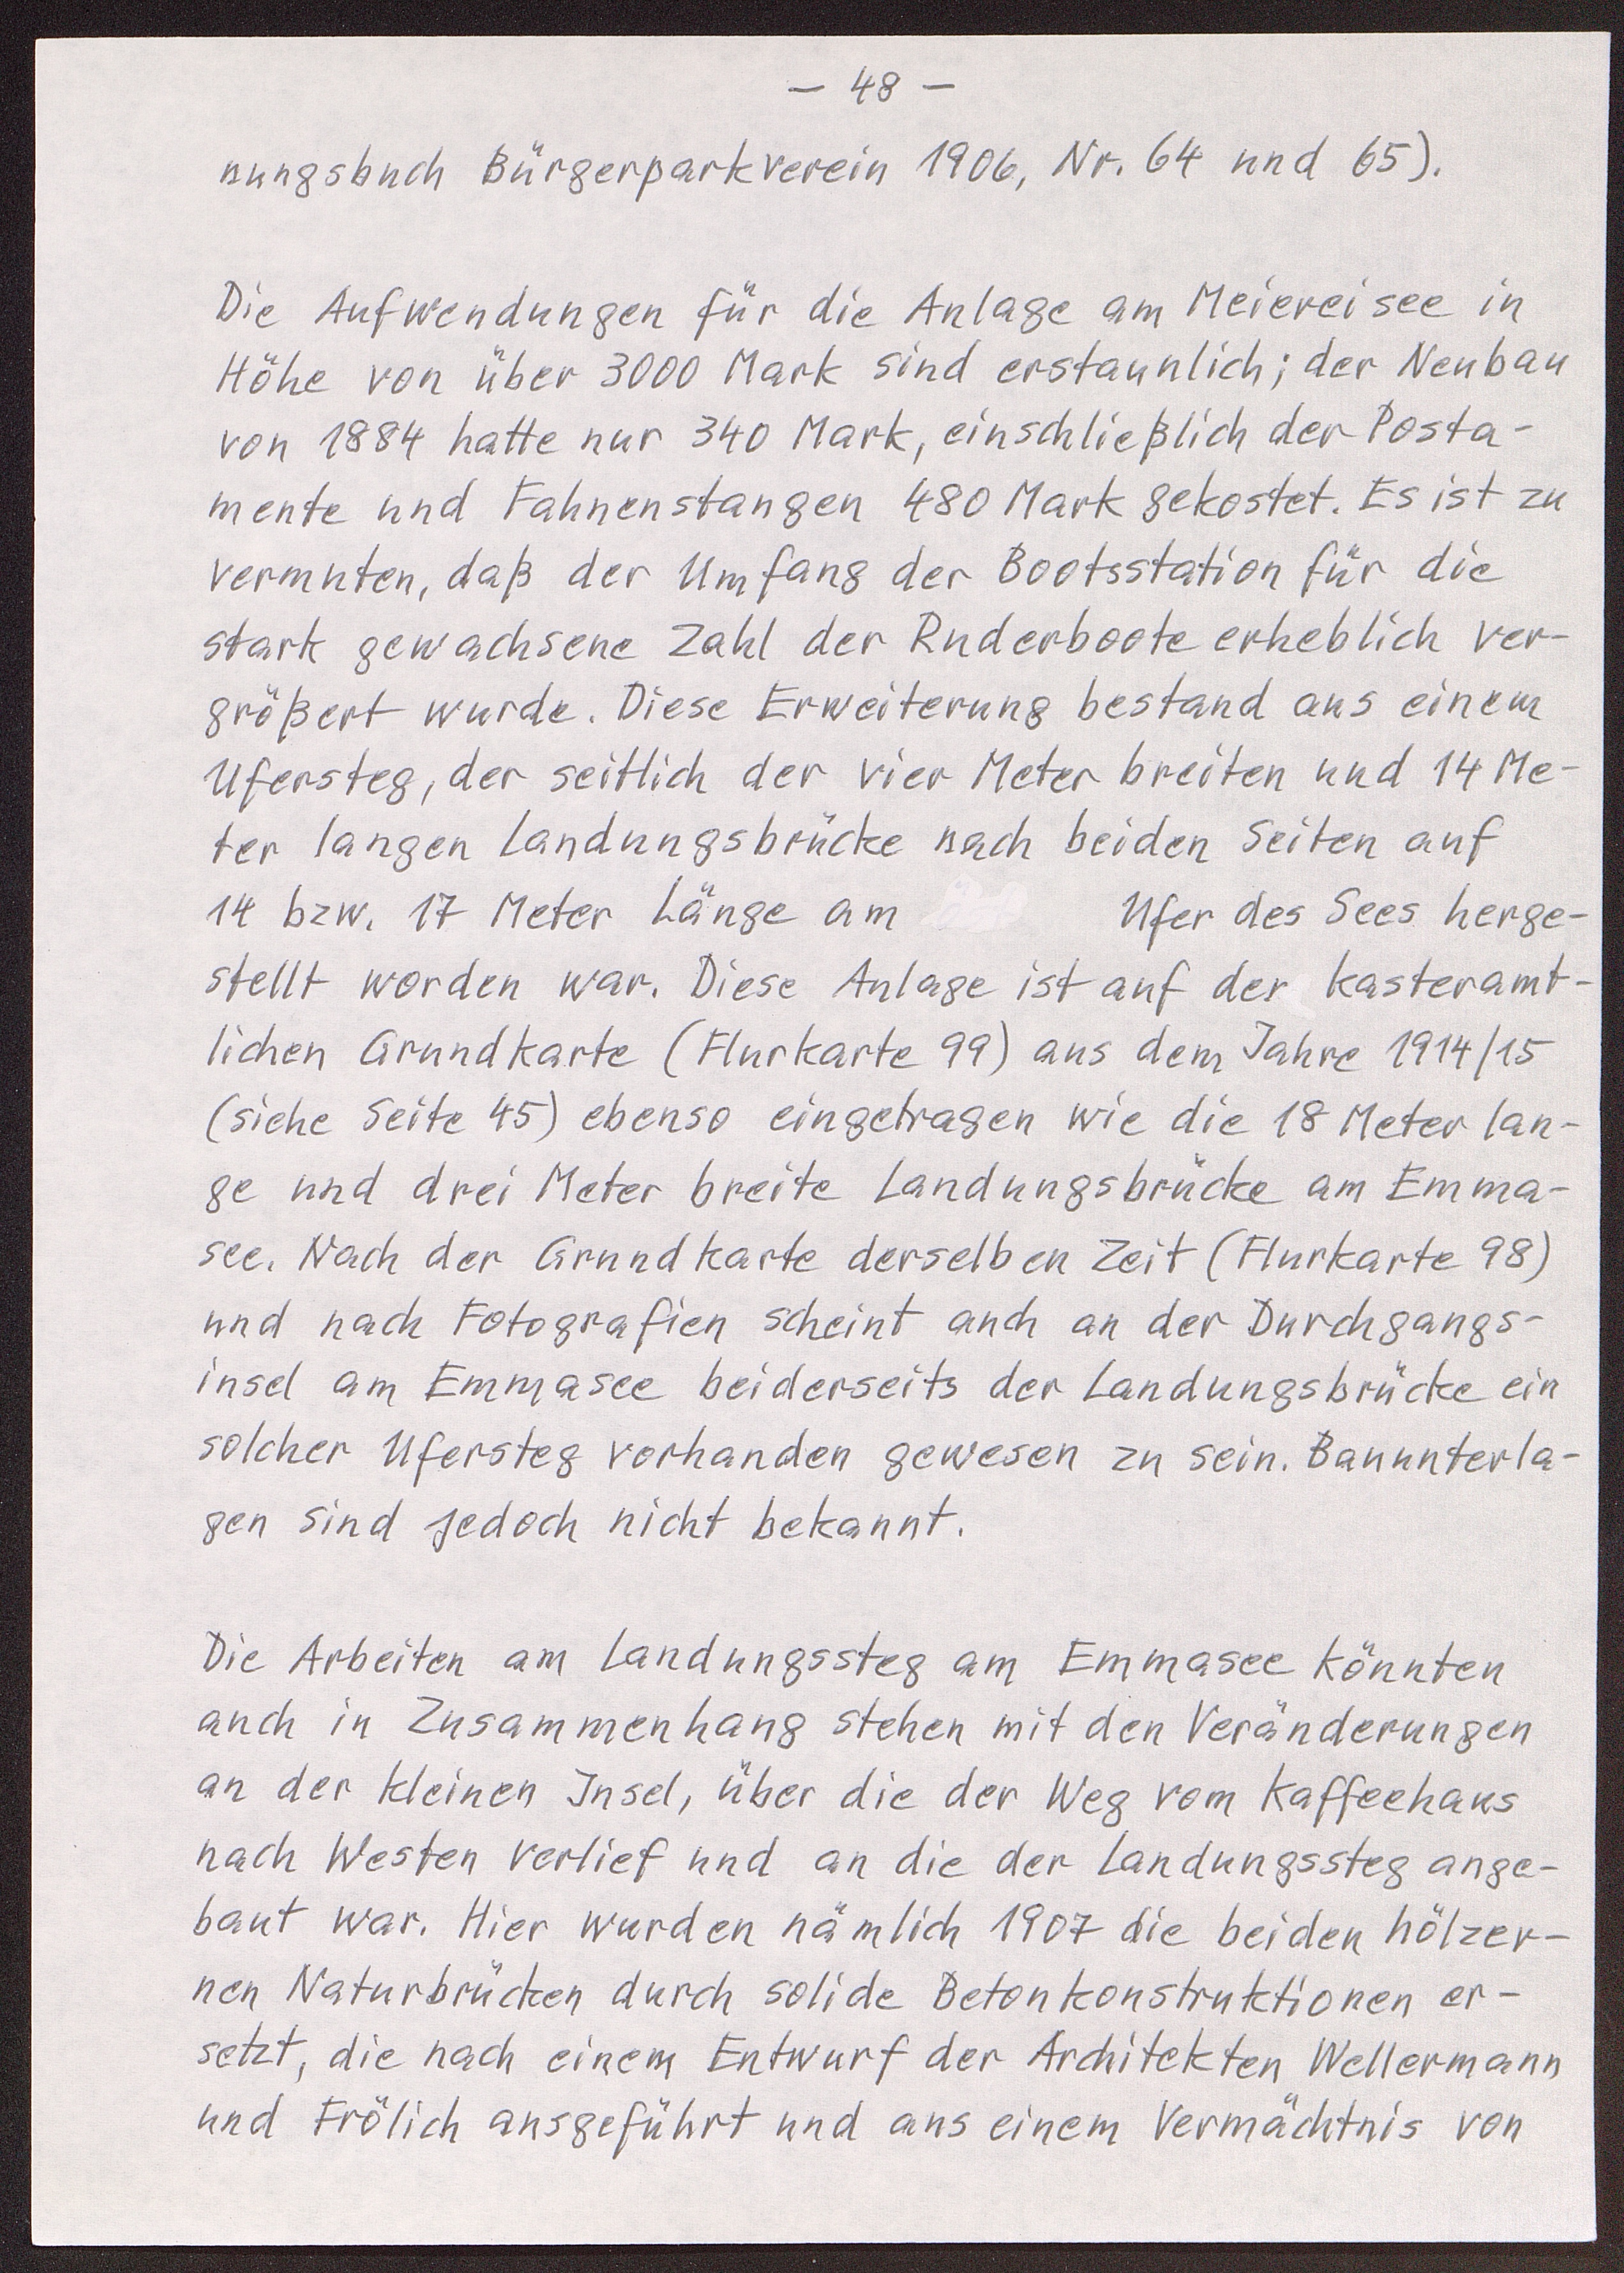 — 48 —
nungsbuch Bürgerparkverein 1906, Nr. 64 und 65).
Die Aufwendungen für die Anlage am Meiereisee in
Höhe von über 3000 Mark sind erstaunlich; der Neubau
von 1884 hatte nur 340 Mark, einschließlich der Posta-
mente und Fahnenstangen 480 Mark gekostet. Es ist zu
vermuten, daß der Umfang der Bootsstation für die
stark gewachsene Zahl der Ruderboote erheblich ver-
größert wurde. Diese Erweiterung bestand aus einem
Ufersteg, der seitlich der vier Meter breiten und 14 Me-
ter langen Landungsbrücke nach beiden Seiten auf
14 bzw. 17 Meter Länge am Ufer des Sees herge-
stellt worden war. Diese Anlage ist auf der kasteramt-
lichen Grundkarte (Flurkarte 99) aus dem Jahre 1914/15
(siehe Seite 45) ebenso eingetragen wie die 18 Meter lan-
ge und drei Meter breite Landungsbrücke am Emma-
see. Nach der Grundkarte derselben Zeit (Flurkarte 98)
und nach Fotografien scheint auch an der Durchgangs-
insel am Emmasee beiderseits der Landungsbrücke ein
solcher Ufersteg vorhanden gewesen zu sein. Bauunterla-
gen sind jedoch nicht bekannt.
Die Arbeiten am Landungssteg am Emmasee könnten
auch in Zusammenhang stehen mit den Veränderungen
an der kleinen Insel, über die der Weg vom Kaffeehaus
nach Westen verlief und an die der Landungssteg ange-
baut war. Hier wurden nämlich 1907 die beiden hölzer-
nen Naturbrücken durch solide Betonkonstruktionen er-
setzt, die nach einem Entwurf der Architekten Wellermann
und Frölich ausgeführt und aus einem Vermächtnis von